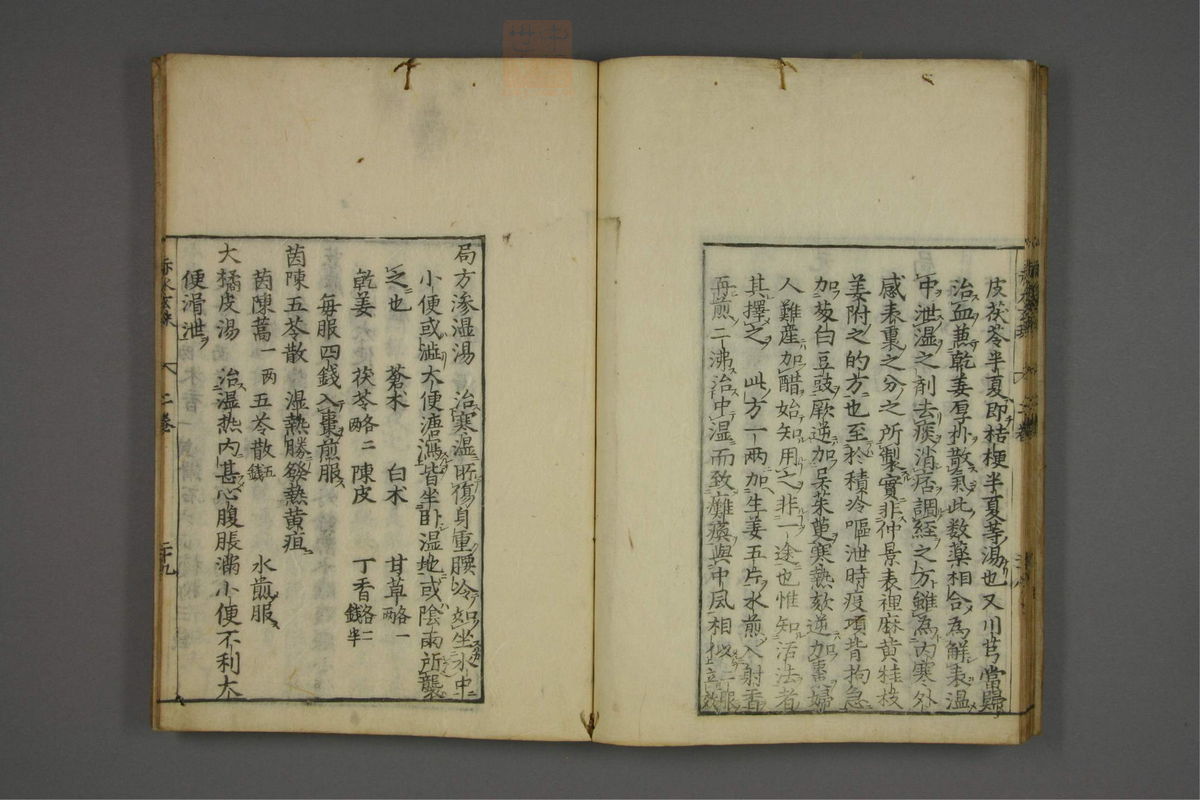 皮茯苓半夏即桔梗半夏等湯也又川芎當歸
治血蒸乾姜厚朴散氣此数藥相合為解表温
中泄湿之剤去痰消痞調経之方雖為内寒外
感表裏之分之所製實非仲景表裡麻黄桂枝
姜附之的方也至於積冷嘔泄時疫項背拘急
加葱白豆豉厥逆加呉茱萸寒熱欬逆加棗婦
人難産加醋始知用之非一途也惟知活法者
其擇之 此方一両加生姜五片水煎入射香
再煎二沸治中湿而致癱瘓與中風相似二服立效
局方滲湿湯 治寒湿所傷身重腰冷如坐水中
小便或澁大便溏瀉皆坐卧湿地或陰雨所襲
之也 蒼木 白木 甘草略一両
乾姜 茯苓略二両 陳皮 丁香略二錢半
毎服四錢入棗煎服
茵陳五苓散 湿熱勝發熱黄疸
茵陳蒿一両 五苓散五錢 水煎服
大橘皮湯 治湿热内甚心腹脹満小便不利大
便滑泄
二卷
二十九